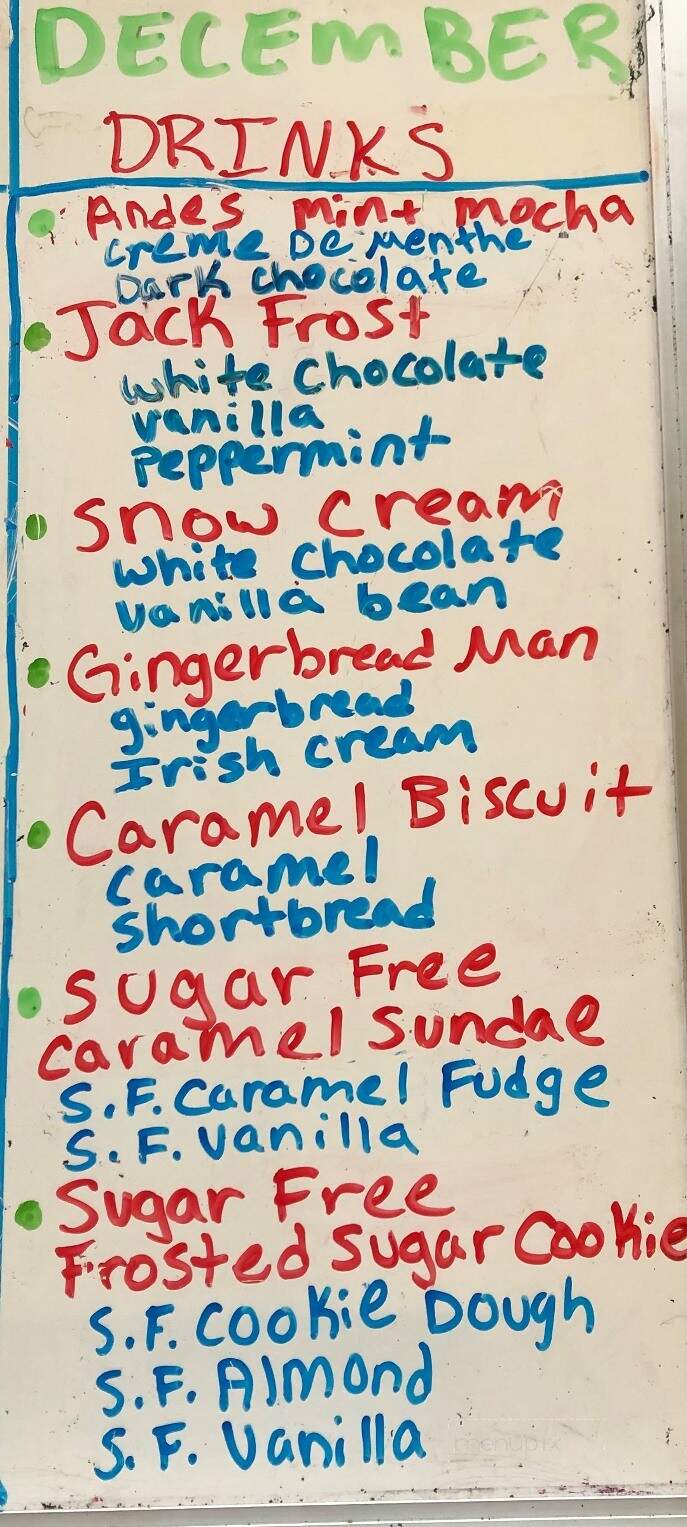 DECEmBER
DRINKS
Andes mint mocha
creme De Menthe
Dark chocolate
Jack Frost
white chocolate
vanilla
Peppermint
Snow cream
white chocolate
vanilla bean
Gingerbread Man
gingerbread
Irish cream
Caramel Biscuit
caramel
shortbread
Sugar Free
caramel Sundae
S.F. caramel Fudge
S.F. vanilla
Sugar Free
Frosted Sugar Cookie
S.F. Cookie Dough
S.F. Almond
S.F. Vanilla
menupix